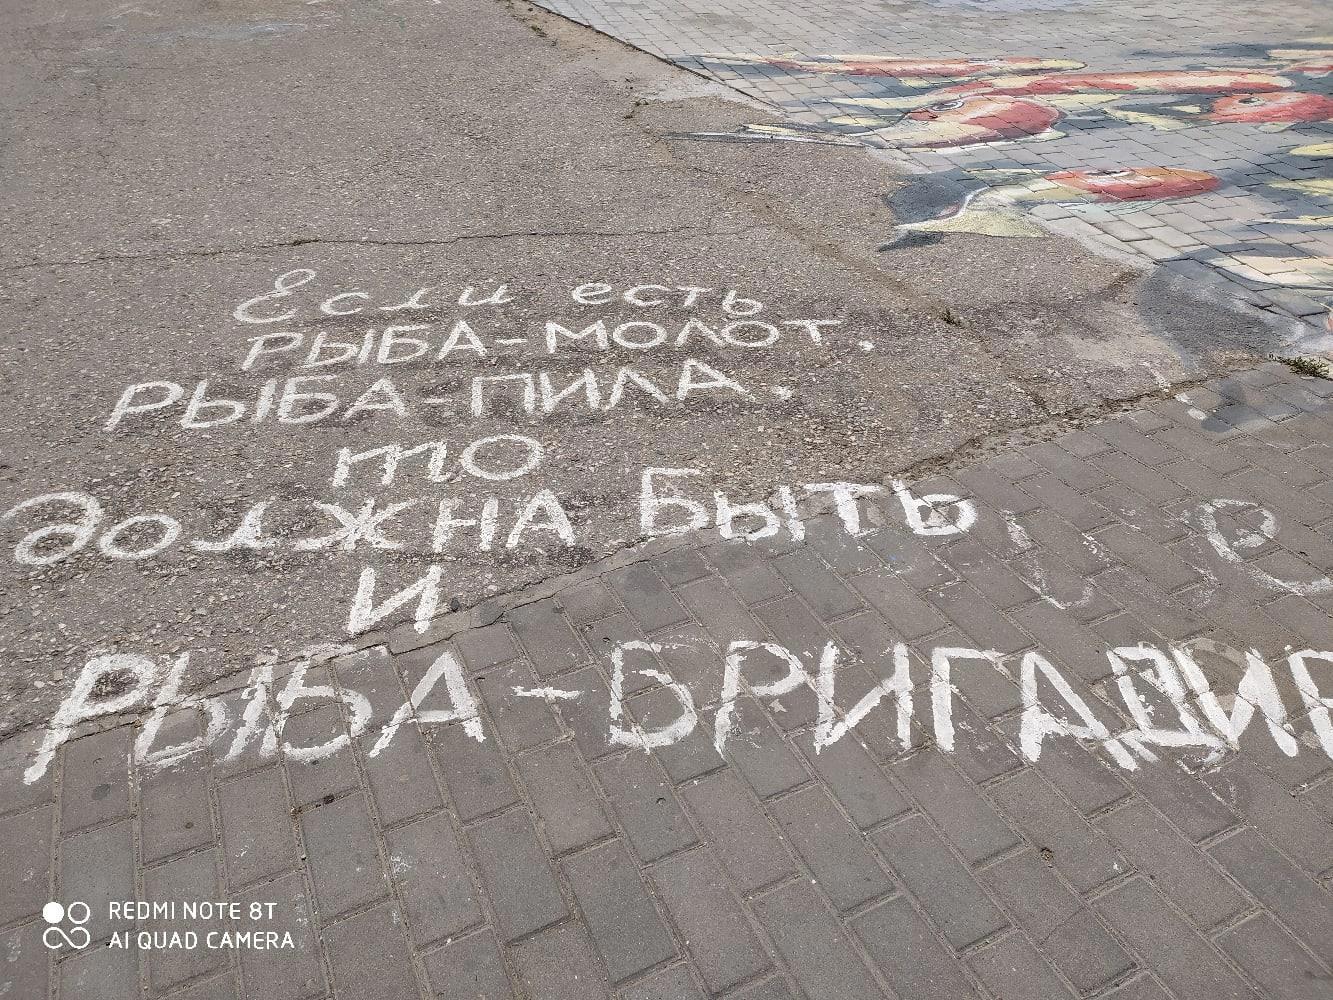 Если есть
РЫБА-МОЛОТ,
РЫБА-ПИЛА,
то
должна Быть
и
РЫБА-БРИГАДИР
REDMI NOTE 8T
AI QUAD CAMERA